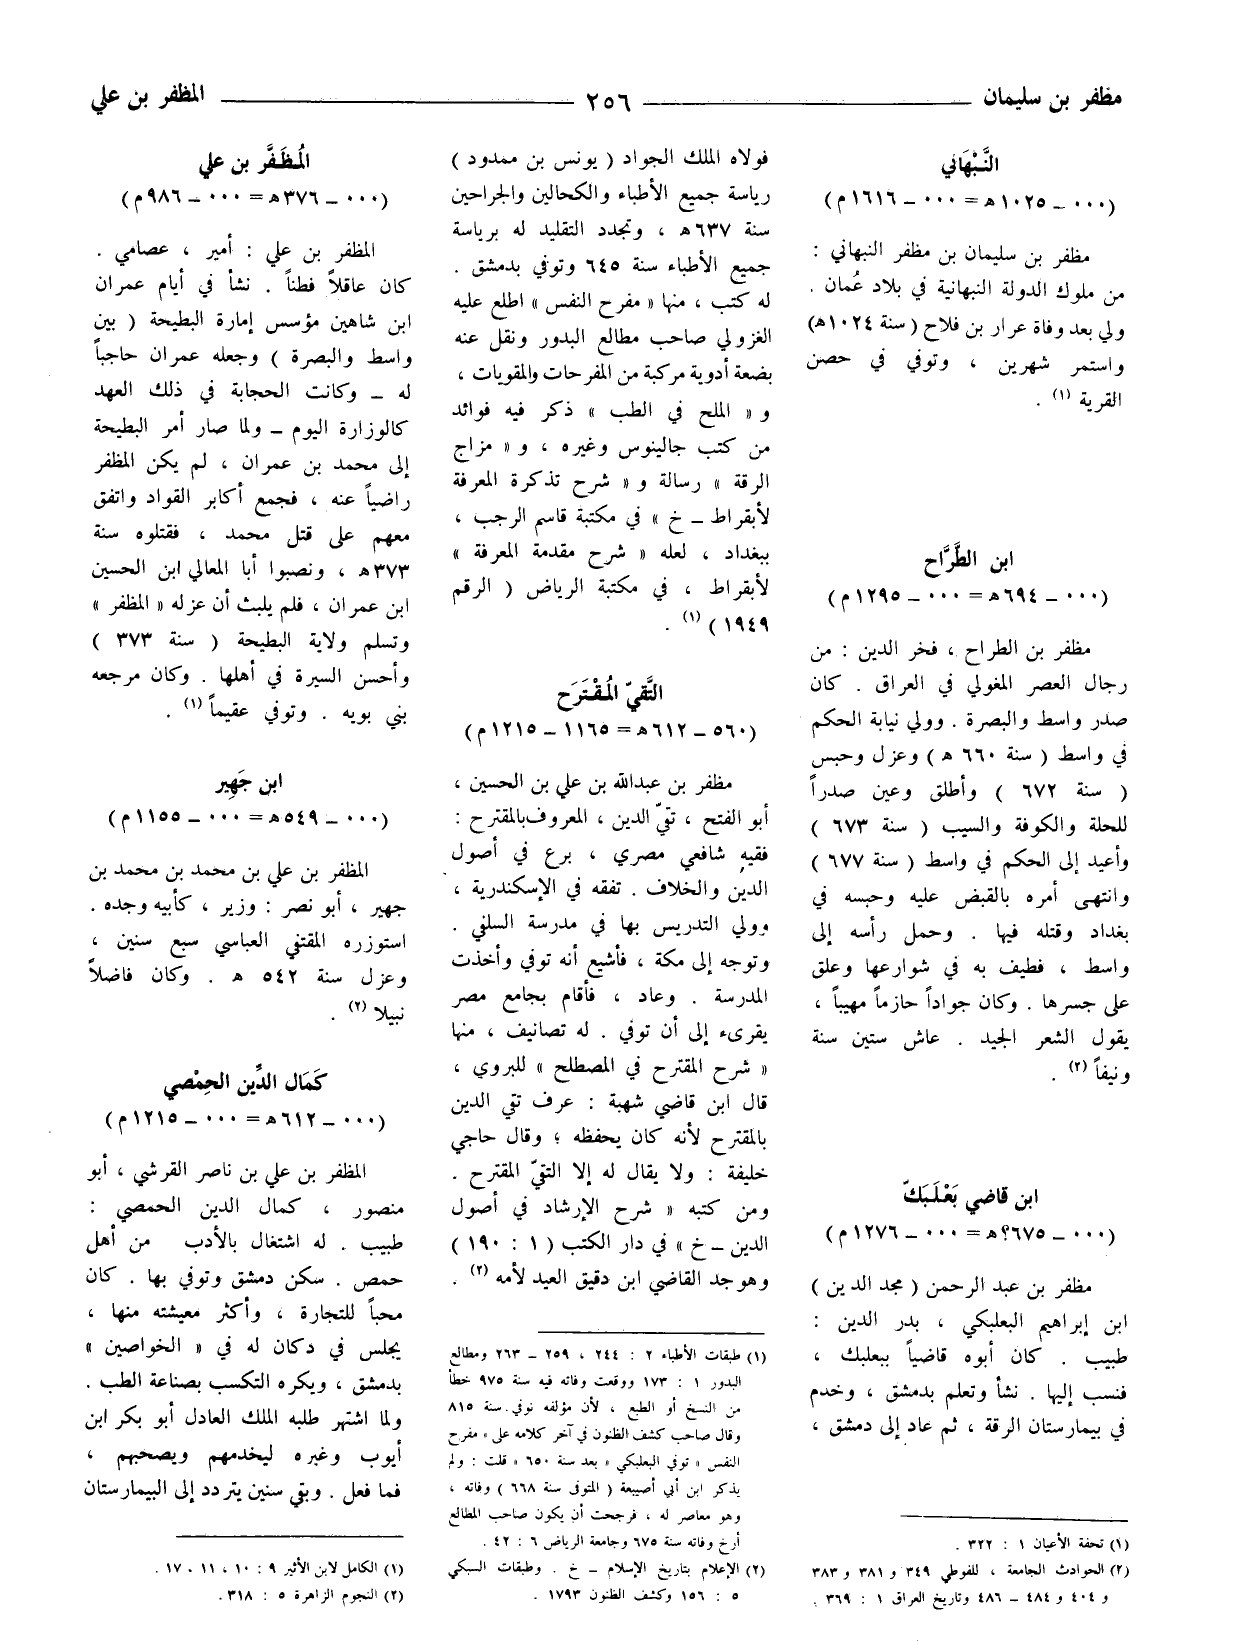 مظفر بن سليمان ٢٥٦ المظفر بن علي
النَّبْهَاني
(٠٠٠ ــ ١٠٢٥ هـ = ٠٠٠ ــ ١٦١٦ م)
مظفر بن سليمان بن مظفر النبهاني :
من ملوك الدولة النبهانية في بلاد عُمان .
ولي بعد وفاة عرار بن فلاح ( سنة ١٠٢٤هـ)
واستمر شهرين ، وتوفي في حصن
القرية (١) .
ابن الطَّرَّاح
(٠٠٠ ــ ٦٩٤هـ = ٠٠٠ ــ ١٢٩٥م)
مظفر بن الطراح ، فخر الدين : من
رجال العصر المغولي في العراق . كان
صدر واسط والبصرة . وولي نيابة الحكم
في واسط ( سنة ٦٦٠ هـ ) وعزل وحبس
( سنة ٦٧٢ ) وأطلق وعين صدراً
للحلة والكوفة والسيب ( سنة ٦٧٣ )
وأعيد إلى الحكم في واسط ( سنة ٦٧٧ )
وانتهى أمره بالقبض عليه وحبسه في
بغداد وقتله فيها . وحمل رأسه إلى
واسط ، فطيف به في شوارعها وعلق
على جسرها . وكان جواداً حازماً مهيباً ،
يقول الشعر الجيد . عاش ستين سنة
ونيفاً (٢) .
ابن قاضي بَعْلَبَكّ
(٠٠٠ ــ ٦٧٥؟هـ = ٠٠٠ ــ ١٢٧٦م)
مظفر بن عبد الرحمن ( مجد الدين )
ابن إبراهيم البعلبكي ، بدر الدين :
طبيب . كان أبوه قاضياً ببعلبك ،
فنسب إليها . نشأ وتعلم بدمشق ، وخدم
في بيمارستان الرقة ، ثم عاد إلى دمشق ،
(١) تحفة الأعيان ١ : ٣٢٢ .
(٢) الحوادث الجامعة ، للفوطي ٣٤٩ و ٣٨١ و ٣٨٣
و ٤٠٤ و ٤٨٤ ــ ٤٨٦ وتاريخ العراق ١ : ٣٦٩ .
فولاه الملك الجواد ( يونس بن ممدود )
رياسة جميع الأطباء والكحالين والجراحين
سنة ٦٣٧هـ ، وتجدد التقليد له برياسة
جميع الأطباء سنة ٦٤٥ وتوفي بدمشق .
له كتب ، منها « مفرح النفس » اطلع عليه
الغزولي صاحب مطالع البدور ونقل عنه
بضعة أدوية مركبة من المفرحات والمقويات ،
و « الملح في الطب » ذكر فيه فوائد
من كتب جالينوس وغيره ، و « مزاج
الرقة » رسالة و « شرح تذكرة المعرفة
لأبقراط ــ خ » في مكتبة قاسم الرجب ،
ببغداد ، لعله « شرح مقدمة المعرفة »
لأبقراط ، في مكتبة الرياض ( الرقم
١٩٤٩ ) (١) .
التَّقيّ المُقْتَرَح
(٥٦٠ ــ ٦١٢هـ = ١١٦٥ ــ ١٢١٥م)
مظفر بن عبدالله بن علي بن الحسين ،
أبو الفتح ، تقيّ الدين ، المعروف بالمقترح :
فقيه شافعي مصري ، برع في أصول
الدين والخلاف . تفقه في الإسكندرية ،
وولي التدريس بها في مدرسة السلفي .
وتوجه إلى مكة ، فأشيع أنه توفي وأخذت
المدرسة . وعاد ، فأقام بجامع مصر
يقرىء إلى أن توفي . له تصانيف ، منها
« شرح المقترح في المصطلح » للبروي ،
قال ابن قاضي شهبة : عرف تقي الدين
بالمقترح لأنه كان يحفظه ؛ وقال حاجي
خليفة : ولا يقال له إلا التقيّ المقترح .
ومن كتبه « شرح الإرشاد في أصول
الدين ــ خ » في دار الكتب ( ١ : ١٩٠ )
وهو جد القاضي ابن دقيق العيد لأمه (٢) .
(١) طبقات الأطباء ٢ : ٢٤٤ ، ٢٥٩ ــ ٢٦٣ ومطالع
البدور ١ : ١٧٣ ووقعت وفاته فيه سنة ٩٧٥ خطأ
من النسخ أو الطبع ، لأن مؤلفه توفي سنة ٨١٥
وقال صاحب كشف الظنون في آخر كلامه على « مفرح
النفس « توفي البعلبكي » بعد سنة ٦٥٠ » قلت : ولم
يذكر ابن أبي أصيبعة ( المتوفى سنة ٦٦٨ ) وفاته ،
وهو معاصر له ، فرجحت أن يكون صاحب المطالع
أرخ وفاته سنة ٦٧٥ وجامعة الرياض ٦ : ٤٢ .
(٢) الإعلام بتاريخ الإسلام ــ خ . وطبقات السبكي
٥ : ١٥٦ وكشف الظنون ١٧٩٣ .
المُظَفَّر بن علي
(٠٠٠ ــ ٣٧٦هـ = ٠٠٠ ــ ٩٨٦م)
المظفر بن علي : أمير ، عصامي .
كان عاقلاً فطناً . نشأ في أيام عمران
ابن شاهين مؤسس إمارة البطيحة ( بين
واسط والبصرة ) وجعله عمران حاجباً
له ــ وكانت الحجابة في ذلك العهد
كالوزارة اليوم ــ ولما صار أمر البطيحة
إلى محمد بن عمران ، لم يكن المظفر
راضياً عنه ، فجمع أكابر القواد واتفق
معهم على قتل محمد ، فقتلوه سنة
٣٧٣هـ ، ونصبوا أبا المعالي ابن الحسين
ابن عمران ، فلم يلبث أن عزله « المظفر »
وتسلم ولاية البطيحة ( سنة ٣٧٣ )
وأحسن السيرة في أهلها . وكان مرجعه
بني بويه . وتوفي عقيماً (١) .
ابن جَهِير
(٠٠٠ ــ ٥٤٩هـ = ٠٠٠ ــ ١١٥٥م)
المظفر بن علي بن محمد بن محمد بن
جهير ، أبو نصر : وزير ، كأبيه وجده .
استوزره المقتفي العباسي سبع سنين ،
وعزل سنة ٥٤٢ هـ . وكان فاضلاً
نبيلا (٢) .
كَمَال الدِّين الحِمْصي
(٠٠٠ ــ ٦١٢هـ = ٠٠٠ ــ ١٢١٥م)
المظفر بن علي بن ناصر القرشي ، أبو
منصور ، كمال الدين الحمصي :
طبيب . له اشتغال بالأدب من أهل
حمص . سكن دمشق وتوفي بها . كان
محباً للتجارة ، وأكثر معيشته منها ،
يجلس في دكان له في « الخواصين »
بدمشق ، ويكره التكسب بصناعة الطب .
ولما اشتهر طلبه الملك العادل أبو بكر ابن
أيوب وغيره ليخدمهم ويصحبهم ،
فما فعل . وبقي سنين يتردد إلى البيمارستان
(١) الكامل لابن الأثير ٩ : ١٠ ، ١١ ، ١٧ .
(٢) النجوم الزاهرة ٥ : ٣١٨ .